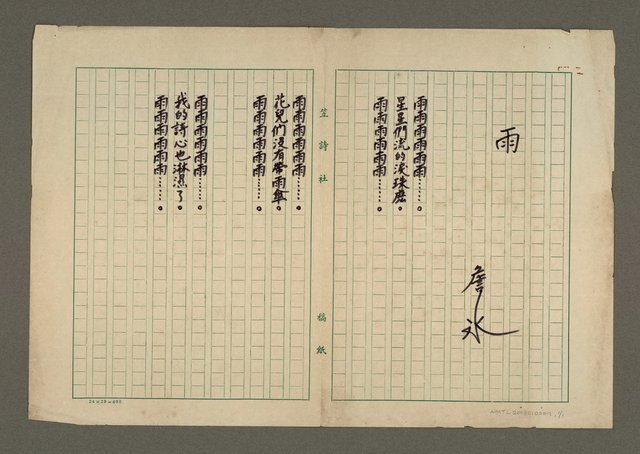 雨
詹氷
雨雨雨雨雨雨……。
星星們流的淚珠麼。
雨雨雨雨雨雨……。
笠詩社 稿紙
雨雨雨雨雨雨……。
花兒們沒有帶雨傘。
雨雨雨雨雨雨……。
雨雨雨雨雨雨……。
我的詩心也淋濕了。
雨雨雨雨雨雨……。